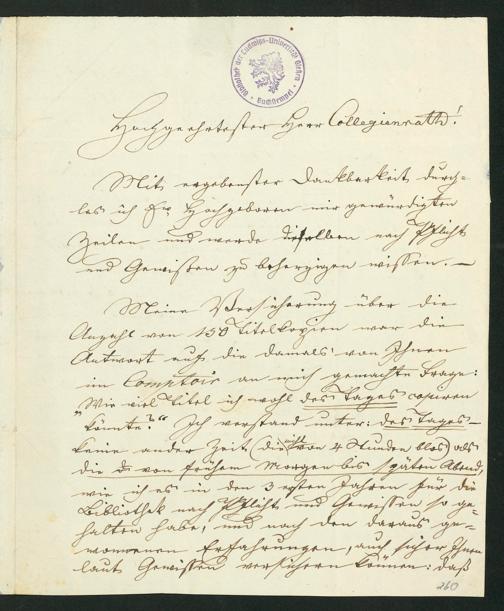 Bibliothek der Ludwigs-Universität Gießen
Buchstempel
Hochgeehrtester Herr Collegienrath!
Mit ergebenster Dankbarkeit durch-
las ich Ew. Hochgeboren mir gewürdigten
Zeilen und werde dieselben nach Pflicht
und Gewißen zu beherzigen wissen. —
Meine Versicherung über die
Anzahl von 150 Titelkopien war die
Antwort auf die damals von Ihnen
im Comptoir an mich gemachte Frage:
"Wie viel Titel ich wohl des Tages copiren
könnte?" Ich verstand unter: des Tages —
keine ander Zeit (die nicht von 4 Stunden blos) als
die v. von frühem Morgen bis späten Abend,
wie ich es in den 3 ersten Jahren für die
Bibliothek nach Pflicht und Gewissen so ge-
halten habe, und nach den daraus ge-
wonnenen Erfahrungen, auch sicher Ihnen
laut Gewissen versichern können: daß
260